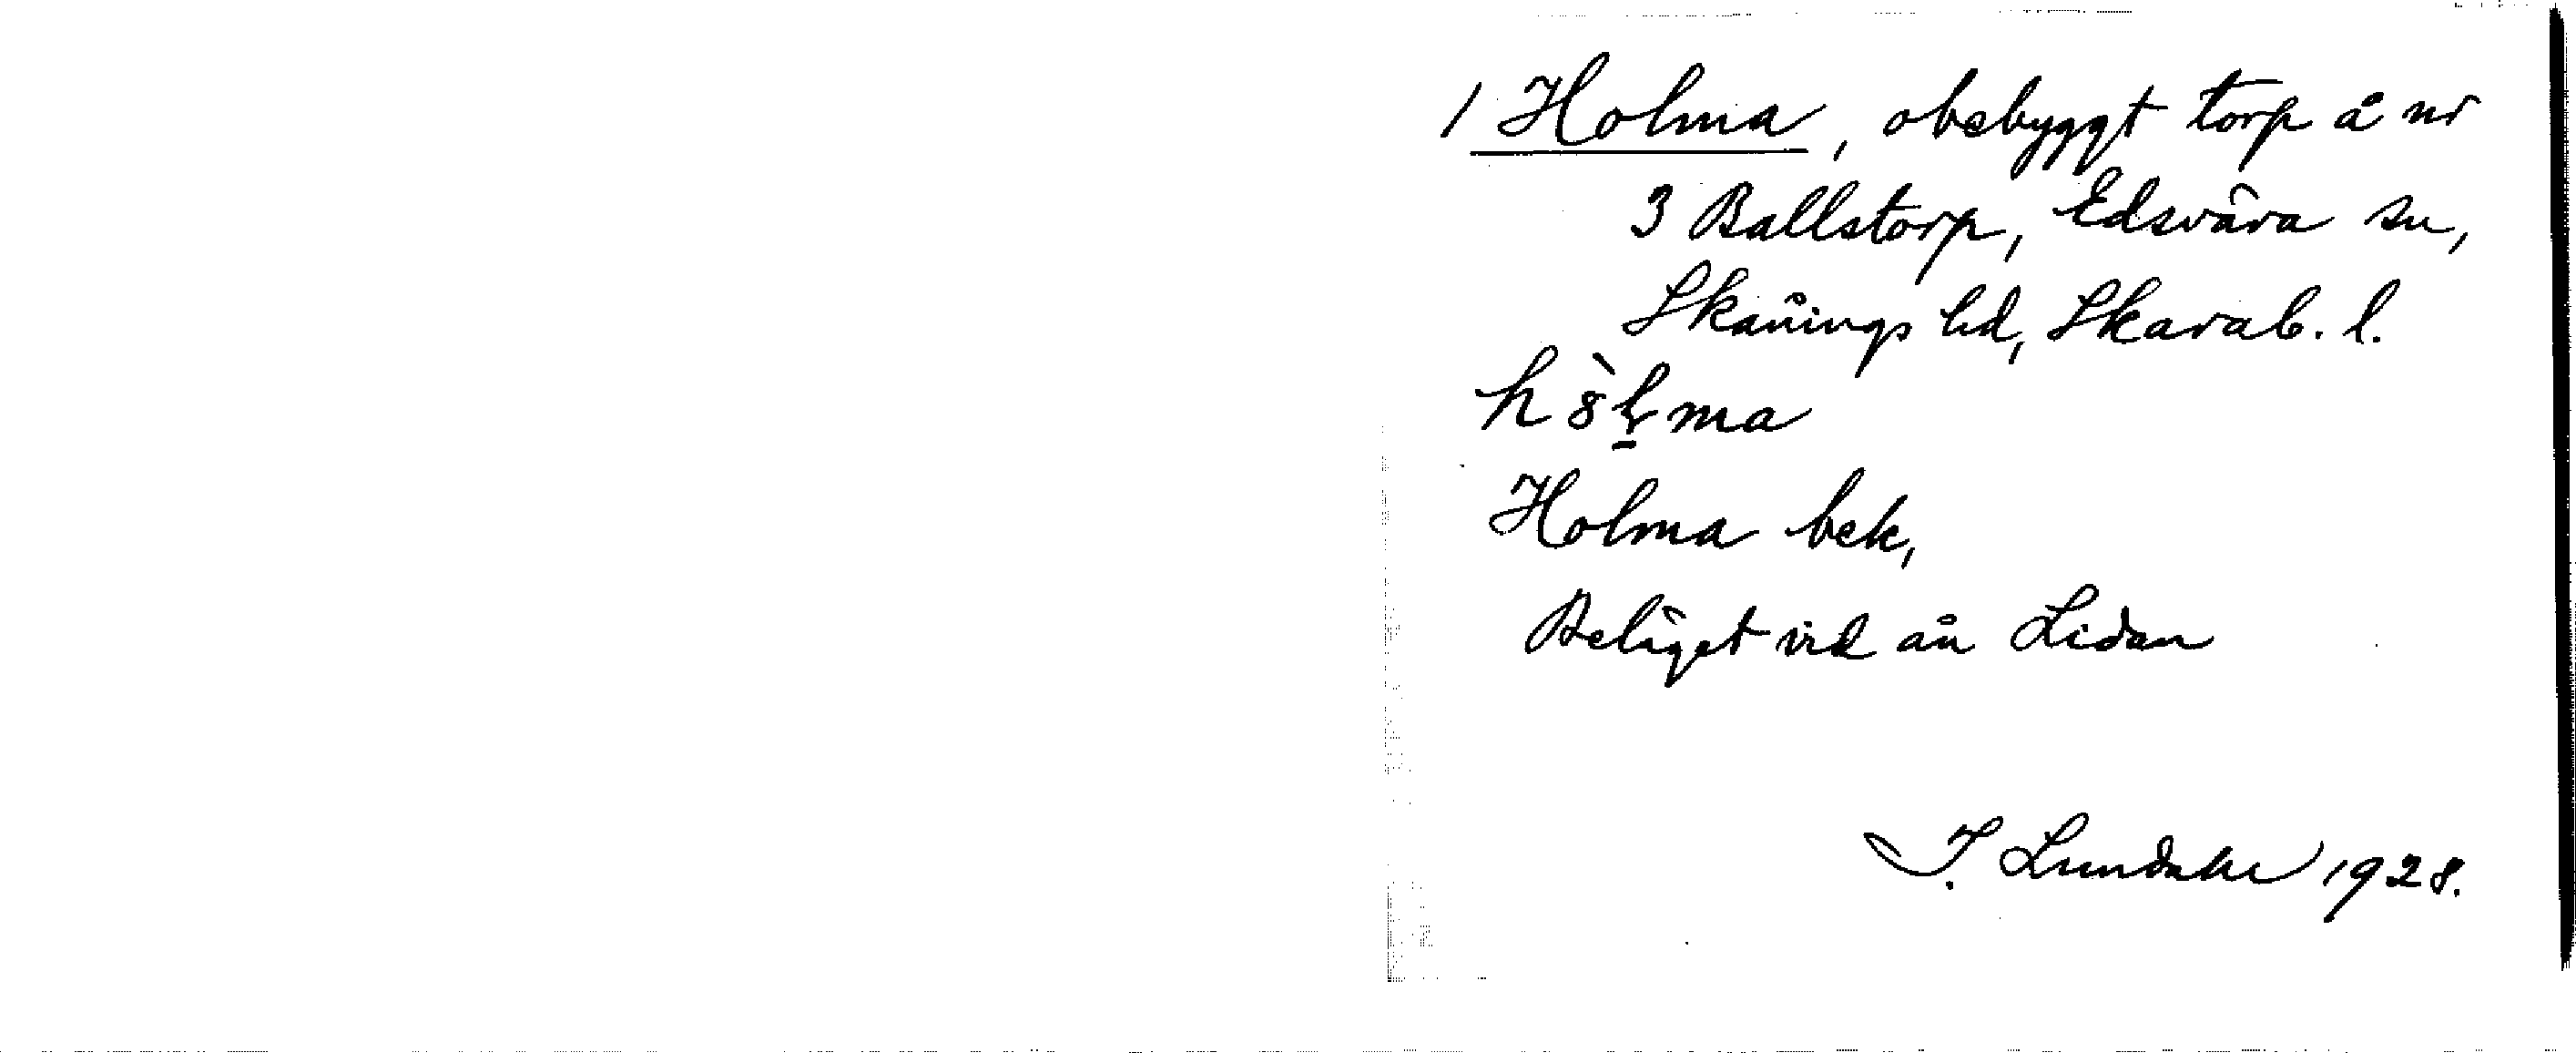 1 Holma, obebyggt torp å nr
3 Ballstorp, Edsvära sn,
Skånings hd, Skarab. l.
h8̀l̠ma
Holma bek,
Beläget vid ån Lidan
J. Lundahl 1928.